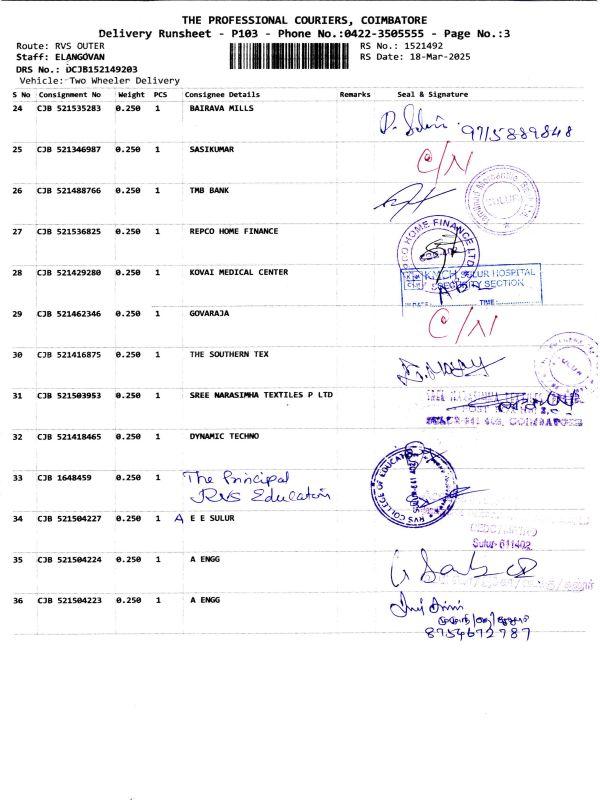 THE PROFESSIONAL COURIERS, COIMBATORE
Delivery Runsheet - P103 - Phone No.:0422-3505555 - Page No.:3
Route: RVS OUTER RS No.: 1521492
Staff: ELANGOVAN RS Date: 18-Mar-2025
DRS No.: DCJB152149203
Vehicle: Two Wheeler Delivery
S No Consignment No Weight PCS Consignee Details Remarks Seal & Signature
24 CJB 521535283 0.250 1 BAIRAVA MILLS
9715889848
25 CJB 521346987 0.250 1 SASIKUMAR C/N
26 CJB 521488766 0.250 1 TMB BANK
SULUR
27 CJB 521536825 0.250 1 REPCO HOME FINANCE
REPCO HOME FINANCE LTD
28 CJB 521429280 0.250 1 KOVAI MEDICAL CENTER
KMCH SULUR HOSPITAL
SECURITY SECTION
DATE: TIME:
29 CJB 521462346 0.250 1 GOVARAJA C/N
30 CJB 521416875 0.250 1 THE SOUTHERN TEX
SULUR
31 CJB 521503953 0.250 1 SREE NARASIMHA TEXTILES P LTD
SULUR-641 402, COIMBATORE
32 CJB 521418465 0.250 1 DYNAMIC TECHNO
33 CJB 1648459 0.250 1 The Principal
RVS Education
RVS COLLEGE OF EDUCATION
34 CJB 521504227 0.250 1 A E E SULUR
Sulur-641402
35 CJB 521504224 0.250 1 A ENGG
36 CJB 521504223 0.250 1 A ENGG
8754672787